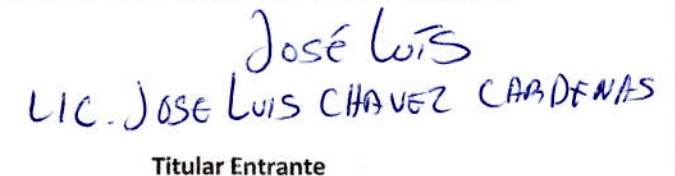 José Luis
LIC. JOSE LUIS CHAVEZ CARDENAS
Titular Entrante